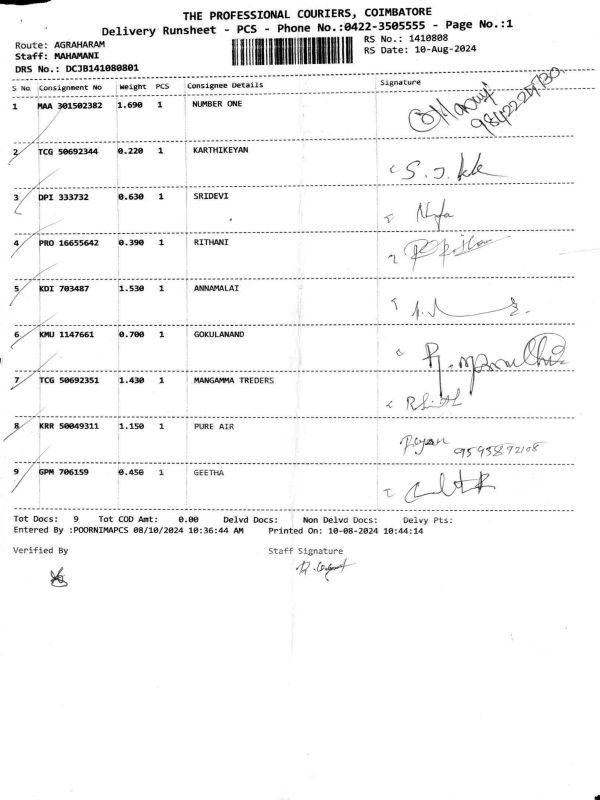 THE PROFESSIONAL COURIERS, COIMBATORE
Delivery Runsheet - PCS - Phone No.:0422-3505555 - Page No.:1
Route: AGRAHARAM
RS No.: 1410808
Staff: MAHAMANI
RS Date: 10-Aug-2024
DRS No.: DCJB141080801
S No Consignment No Weight PCS Consignee Details Signature
1 MAA 301502382 1.690 1 NUMBER ONE
2 TCG 50692344 0.220 1 KARTHIKEYAN
3 DPI 333732 0.630 1 SRIDEVI
4 PRO 16655642 0.390 1 RITHANI
5 KDI 703487 1.530 1 ANNAMALAI
6 KMU 1147661 0.700 1 GOKULANAND
7 TCG 50692351 1.430 1 MANGAMMA TREDERS
8 KRR 50049311 1.150 1 PURE AIR
9 GPM 706159 0.450 1 GEETHA
Tot Docs: 9 Tot COD Amt: 0.00 Delvd Docs: Non Delvd Docs: Delvy Pts:
Entered By :POORNIMAPCS 08/10/2024 10:36:44 AM Printed On: 10-08-2024 10:44:14
Verified By Staff Signature